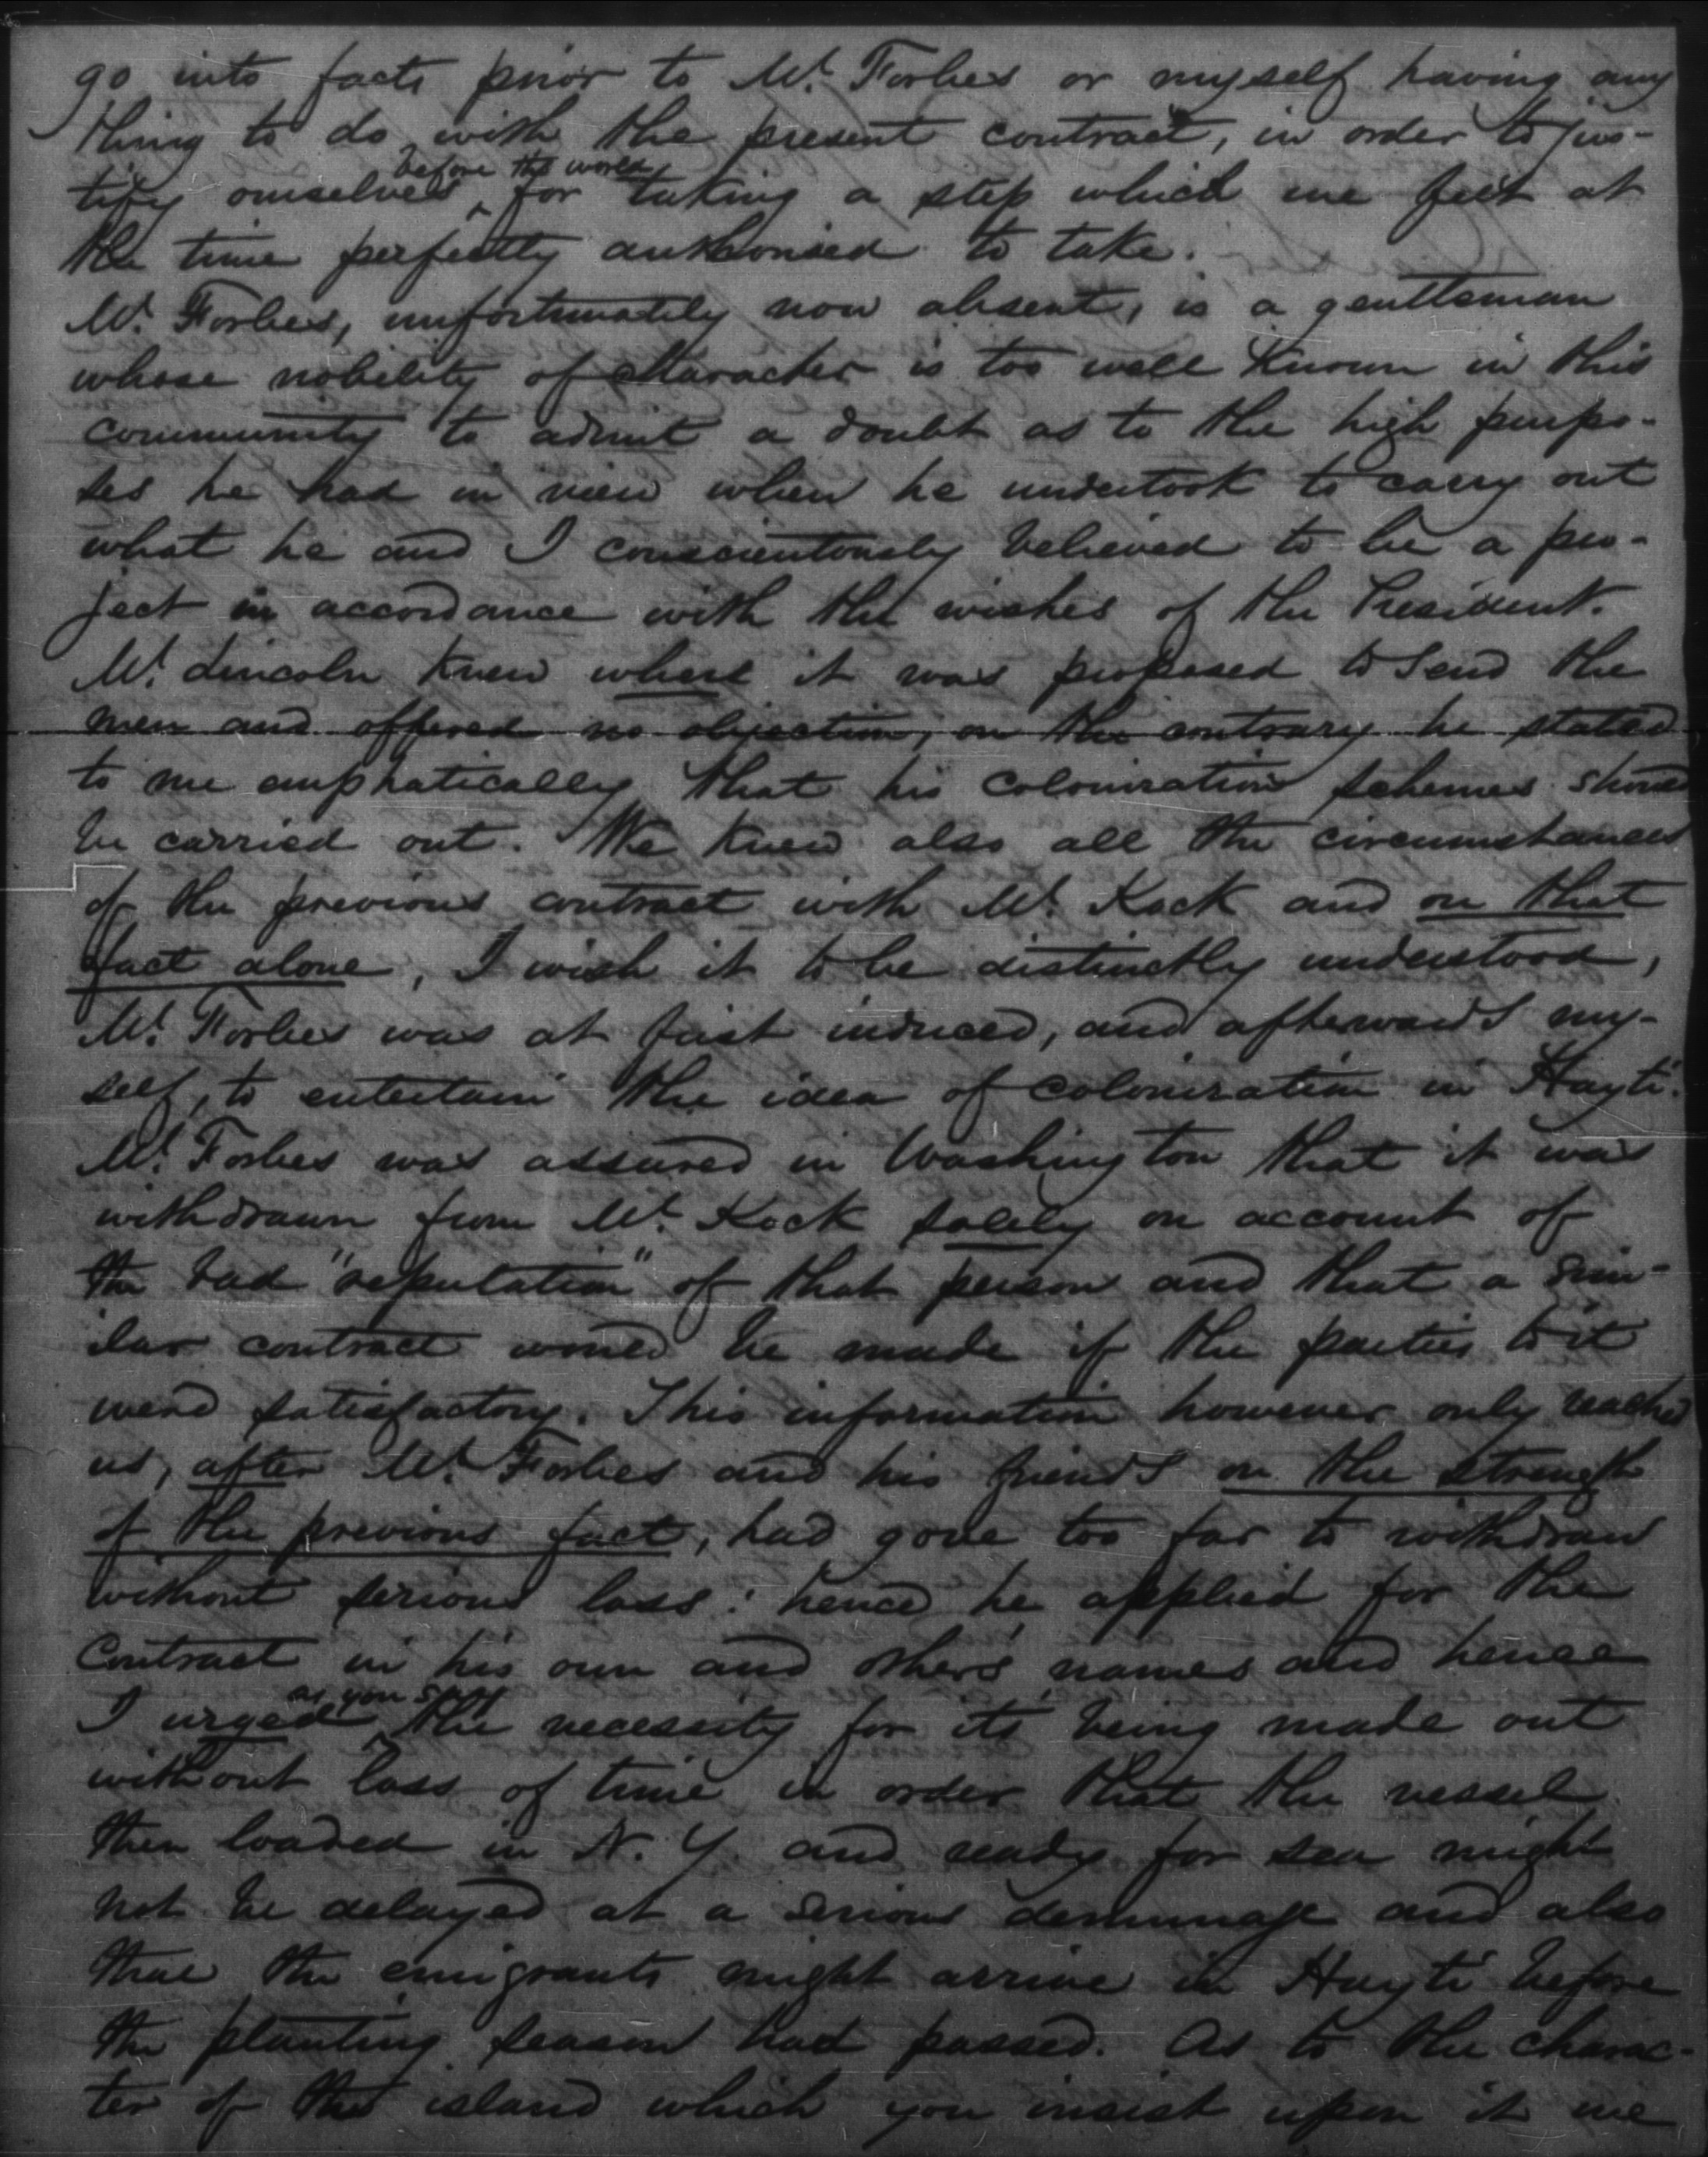 go into facts prior to Mr. Forbes or myself having any
thing to do with the present contract, in order to jus-
tify ourselves before the world for taking a step which we felt at
the time perfectly authorised to take.
Mr. Forbes, unfortunately now absent, is a gentleman
whose nobility of character is too well known in this
community to admit a doubt as to the high purpo-
ses he had in view when he undertook to carry out
what he and I conscientously believed to be a pro-
ject in accordance with the wishes of the President.
Mr. Lincoln knew where it was proposed to send the
men and offered no objection, on the contrary he stated
to me emphatically that his colonization schemes should
be carried out. We knew also all the circumstances
of the previous contract with Mr. Kock and on that
fact alone, I wish it to be distinctly understood,
Mr. Forbes was at first induced, and afterwards my-
self, to entertain the idea of colonization in Hayti.
Mr. Forbes was assured in Washington that it was
withdrawn from Mr. Kock solely on account of
the bad "reputation" of that person and that a sim-
ilar contract would be made if the parties to it
were satisfactory. This information however only reached
us, after Mr. Forbes and his friends on the strength
of the previous fact, had gone too far to withdraw
without serious loss: hence he applied for the
contract in his own and others names and hence
I urged as you say the necessity for its being made out
without loss of time in order that the vessel
then loaded in N. Y. and ready for sea might
not be delayed at a serious demurrage and also
that the emigrants might arrive in Hayti before
the planting season had passed. As to the charac-
ter of the island which you insist upon it we